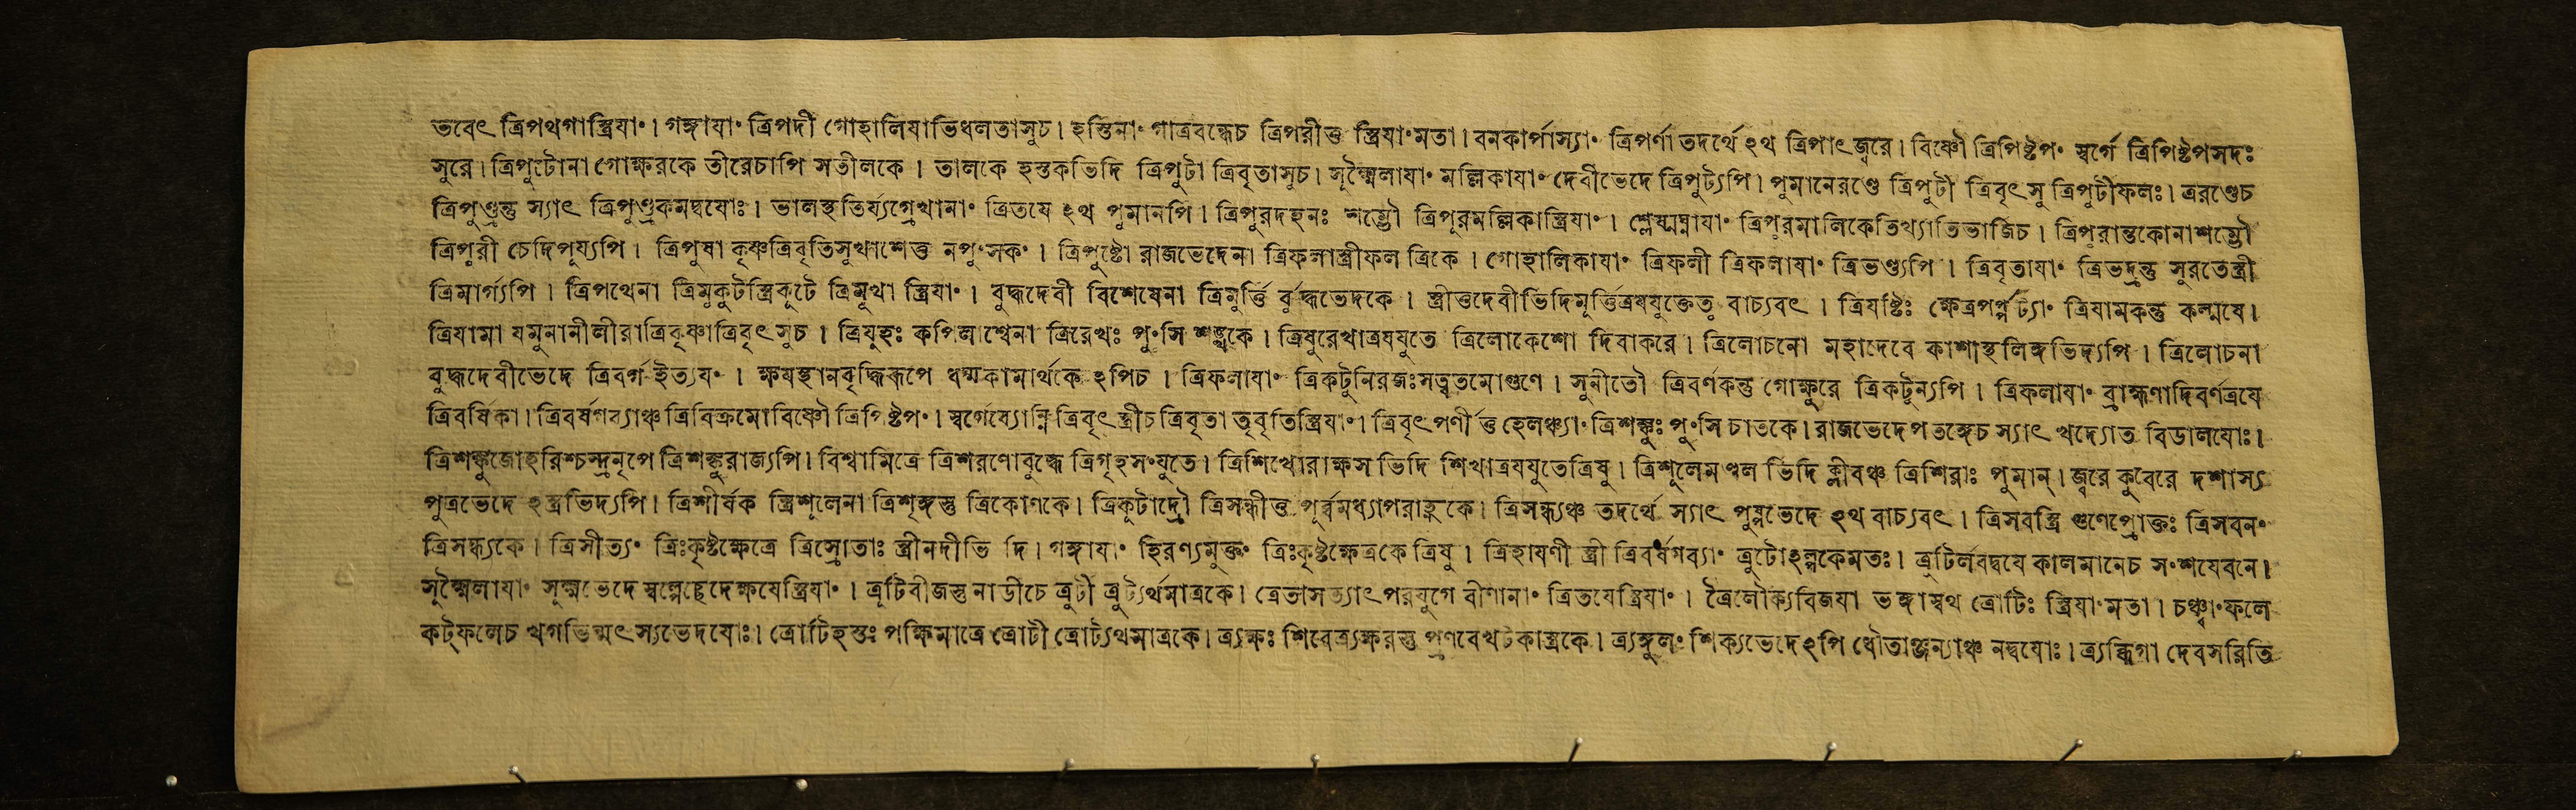 ভবেৎ ত্রিপথগাস্ত্রিযাং। গঙ্গাযাং ত্রিপদী গোহালিযাভিধলতাসুচ। হস্তিনাং গাত্রবন্ধেচ ত্রিপর্ণীত্ত স্ত্রিযাংমতা। বনকার্পাস্যাং ত্রিপর্ণা তদর্থে ঽথ ত্রিপাৎজ্বরে। বিষ্ণৌ ত্রিপিষ্টপং স্বর্গে ত্রিপিষ্টপসদঃ
সুরে। ত্রিপুটোনা গোক্ষরকে তীরেচাপি সতীলকে। তালকে হস্তকভিদি ত্রিপুটা ত্রিবৃতাসুচ। সূক্ষ্মৈলাযাং মল্লিকাযাং দেবীভেদে ত্রিপুট্যপি। পুমানেরণ্ডে ত্রিপুটী ত্রিবৃৎসু ত্রিপুটীফলঃ। ত্ররণ্ডেচ
ত্রিপুণ্ড্রন্তু স্যাৎ ত্রিপুণ্ড্রকমদ্বযোঃ। ভালস্থতির্য্যগ্রেখানাং ত্রিতযে ঽথ পুমানপি। ত্রিপুরদহনঃ শম্ভৌ ত্রিপুরমল্লিকাস্ত্রিযাং। শ্লেষ্মঘ্নাযাং ত্রিপুরমালিকেতিখ্যাতিভাজিচ। ত্রিপুরান্তকোনাশম্ভৌ
ত্রিপুরী চেদিপূয্যপি। ত্রিপুষা কৃষ্ণত্রিবৃতিসুখাশেত্ত নপুংসকং। ত্রিপুষ্টো রাজভেদেনা ত্রিফলাস্ত্রীফল ত্রিকে। গোহালিকাযাং ত্রিফলী ত্রিফলাযাং ত্রিভণ্ড্যপি। ত্রিবৃতাযাং ত্রিভদ্রন্তু সুরতেস্ত্রী
ত্রিমার্গ্যপি। ত্রিপথেনা ত্রিমুকুটস্ত্রিকুটে ত্রিমূখা স্ত্রিযাং। বুদ্ধদেবী বিশেষেনা ত্রিমুর্ত্তি র্বুদ্ধভেদকে। স্ত্রীত্তদেবীভিদিমূর্ত্তিত্রযযুক্তেতু বাচ্যবৎ। ত্রিযষ্টিঃ ক্ষেত্রপর্প্পট্যাং ত্রিযামকন্তু কল্মষে।
ত্রিযামা যমুনানীলীরাত্রিকৃষ্ণাত্রিবৃৎসুচ। ত্রিযুহঃ কপিলাশ্বেনা ত্রিরেখঃ পুংসি শঙ্খকে। ত্রিষুরেখাত্রযযুতে ত্রিলোকেশো দিবাকরে। ত্রিলোচনো মহাদেবে কাশীস্থলিঙ্গভিদ্যপি। ত্রিলোচনা
বুদ্ধদেবীভেদে ত্রিবর্গ ইত্যযং। ক্ষযস্থানবৃদ্ধিরূপে ধম্মকামার্থকে ঽপিচ। ত্রিফলাযাং ত্রিকটুনিরজঃসত্ত্বতমোগুণে। সুনীতৌ ত্রিবর্ণকন্তু গোক্ষুরে ত্রিকটুন্যপি। ত্রিফলাযাং ব্রাহ্মণাদিবর্ণত্রযে
ত্রিবর্ষিকা। ত্রিবর্ষগব্যাঞ্চ ত্রিবিক্রমোবিষ্ণৌ ত্রিপিষ্টপং। স্বর্গেব্যোম্নি ত্রিবৃৎস্ত্রীচ ত্রিবৃতা তৃবৃতিস্ত্রিযাং। ত্রিবৃৎপর্ণীত্ত হেলঞ্চ্যাং ত্রিশঙ্কুঃ পুংসি চাতকে। রাজভেদেপতঙ্গেচ স্যাৎ খদ্যোত বিডালযোঃ।
ত্রিশঙ্কুজোহরিশ্চন্দ্রনৃপে ত্রিশঙ্কুরাজ্যপি। বিশ্বামিত্রে ত্রিশরণোবুদ্ধে ত্রিগৃহসংযুতে। ত্রিশিখোরাক্ষস ভিদি শিখাত্রযযুতেত্রিষু। ত্রিশূলেমণ্ডল ভিদি ক্লীবঞ্চ ত্রিশিরাঃ পুমান্। জ্বরে কুবেরে দশাস্য
পুত্রভেদে ঽস্ত্রভিদ্যপি। ত্রিশীর্ষক স্ত্রিশূলেনা ত্রিশৃঙ্গস্তু ত্রিকোণকে। ত্রিকূটাদ্রৌ ত্রিসন্ধীত্ত পূর্বমধ্যাপরাহ্ণকে। ত্রিসন্ধ্যঞ্চ তদর্থে স্যাৎ পুষ্পভেদে ঽথ বাচ্যবৎ। ত্রিসবস্ত্রি গুণেপ্রোক্তঃ ত্রিসবনং
ত্রিসন্ধ্যকে। ত্রিসীত্যং ত্রিঃকৃষ্টক্ষেত্রে ত্রিস্রোতাঃ স্ত্রীনদীভি দি। গঙ্গাযাং হিরণ্যমুক্তং ত্রিঃকৃষ্টক্ষেত্রকে ত্রিষু। ত্রিহাযণী স্ত্রী ত্রিবর্ষগব্যাং ত্রুটোঽল্পকেমতঃ। ত্রুটির্লবদ্বযে কালমানেচ সংশযেবনে।
সূক্ষ্মৈলাযাং সূক্ষ্মভেদে স্বল্পেচ্ছেদেক্ষযেস্ত্রিযাং। ত্রুটিবীজস্তু নাডীচে ত্রুটী ত্রুট্যর্থমাত্রকে। ত্রেতাসত্যাৎপরযুগে বীণানাং ত্রিতযেস্ত্রিযাং। ত্রৈলৌক্যবিজযা ভঙ্গাস্বথ ত্রোটিঃ স্ত্রিযাংমতা। চঞ্চ্বাংফলে
কট্ফলেচ খগভিন্মৎস্যভেদযোঃ। ত্রোটিহস্তঃ পক্ষিমাত্রে ত্রোটী ত্রোট্যথমাত্রকে। ত্র্যক্ষঃ শিবেত্র্যক্ষরন্তু প্রণবেখটকাস্ত্রকে। ত্র্যঙ্গুলং শিক্যভেদেঽপি ধৌতাঞ্জন্যাঞ্চ নদ্বযোঃ। ত্র্যদ্ধিগা দেবসরিতি